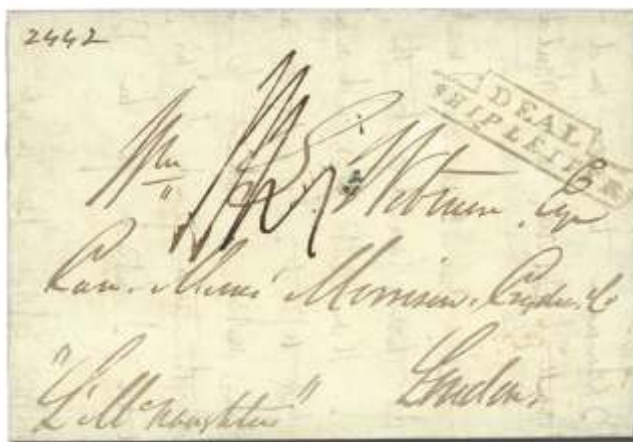 2442
DEAL
SHIP LETTER
Wm Esq
Care Morrison, Cryder & Co
London
"L. McNaughten"